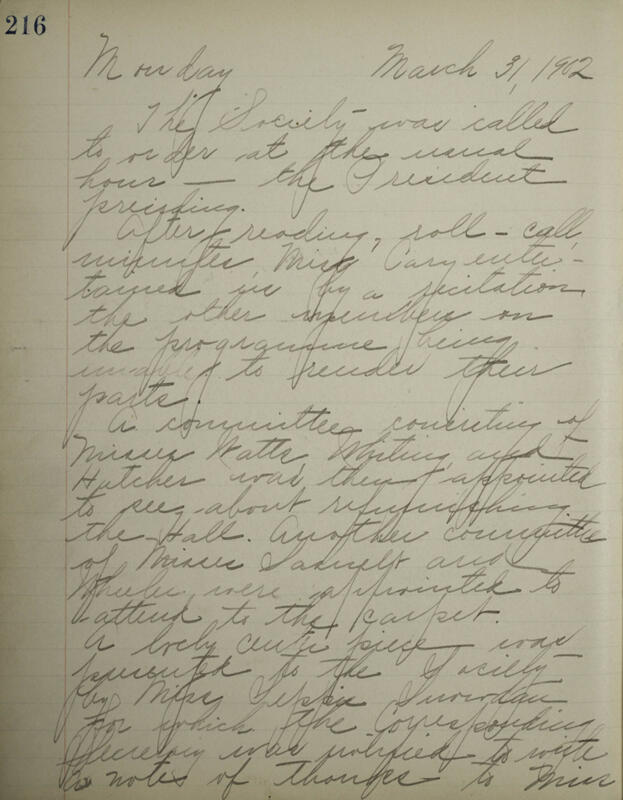 216
Monday March 31, 1902
The Society was called
to order at the usual
hour — the President
presiding.
After reading, roll-call,
minutes, Miss Cary enter-
tained us by a recitation
the other members on
the programme being
unable to render their
parts.
A committee consisting of
Misses Watts, Whiting and
Hatcher was then appointed
to see about refurnishing
the Hall. Another committee
of Misses and
Wheeler were appointed to
attend to the carpet.
A lovely centre piece was
presented to the Society
by Miss Snowdan
for which the Corresponding
Secretary was notified to write
a notes of thanks to Miss